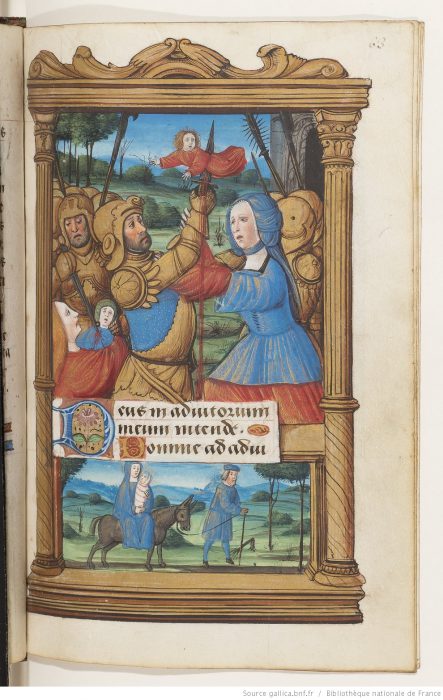 Deus in adiutorium
meum intende.
Domine ad adiu
Source gallica.bnf.fr / Bibliothèque nationale de France